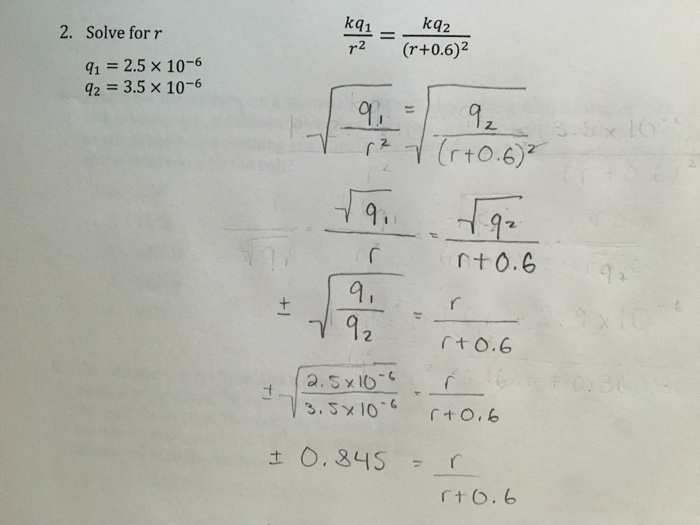 2. Solve for r
kq₁/r² = kq₂/(r+0.6)²
q₁ = 2.5 × 10⁻⁶
q₂ = 3.5 × 10⁻⁶
√(q₁/r²) = √(q₂/(r+0.6)²)
√q₁/r = √q₂/(r+0.6)
± √(q₁/q₂) = r/(r+0.6)
± √(2.5×10⁻⁶/3.5×10⁻⁶) = r/(r+0.6)
± 0.845 = r/(r+0.6)